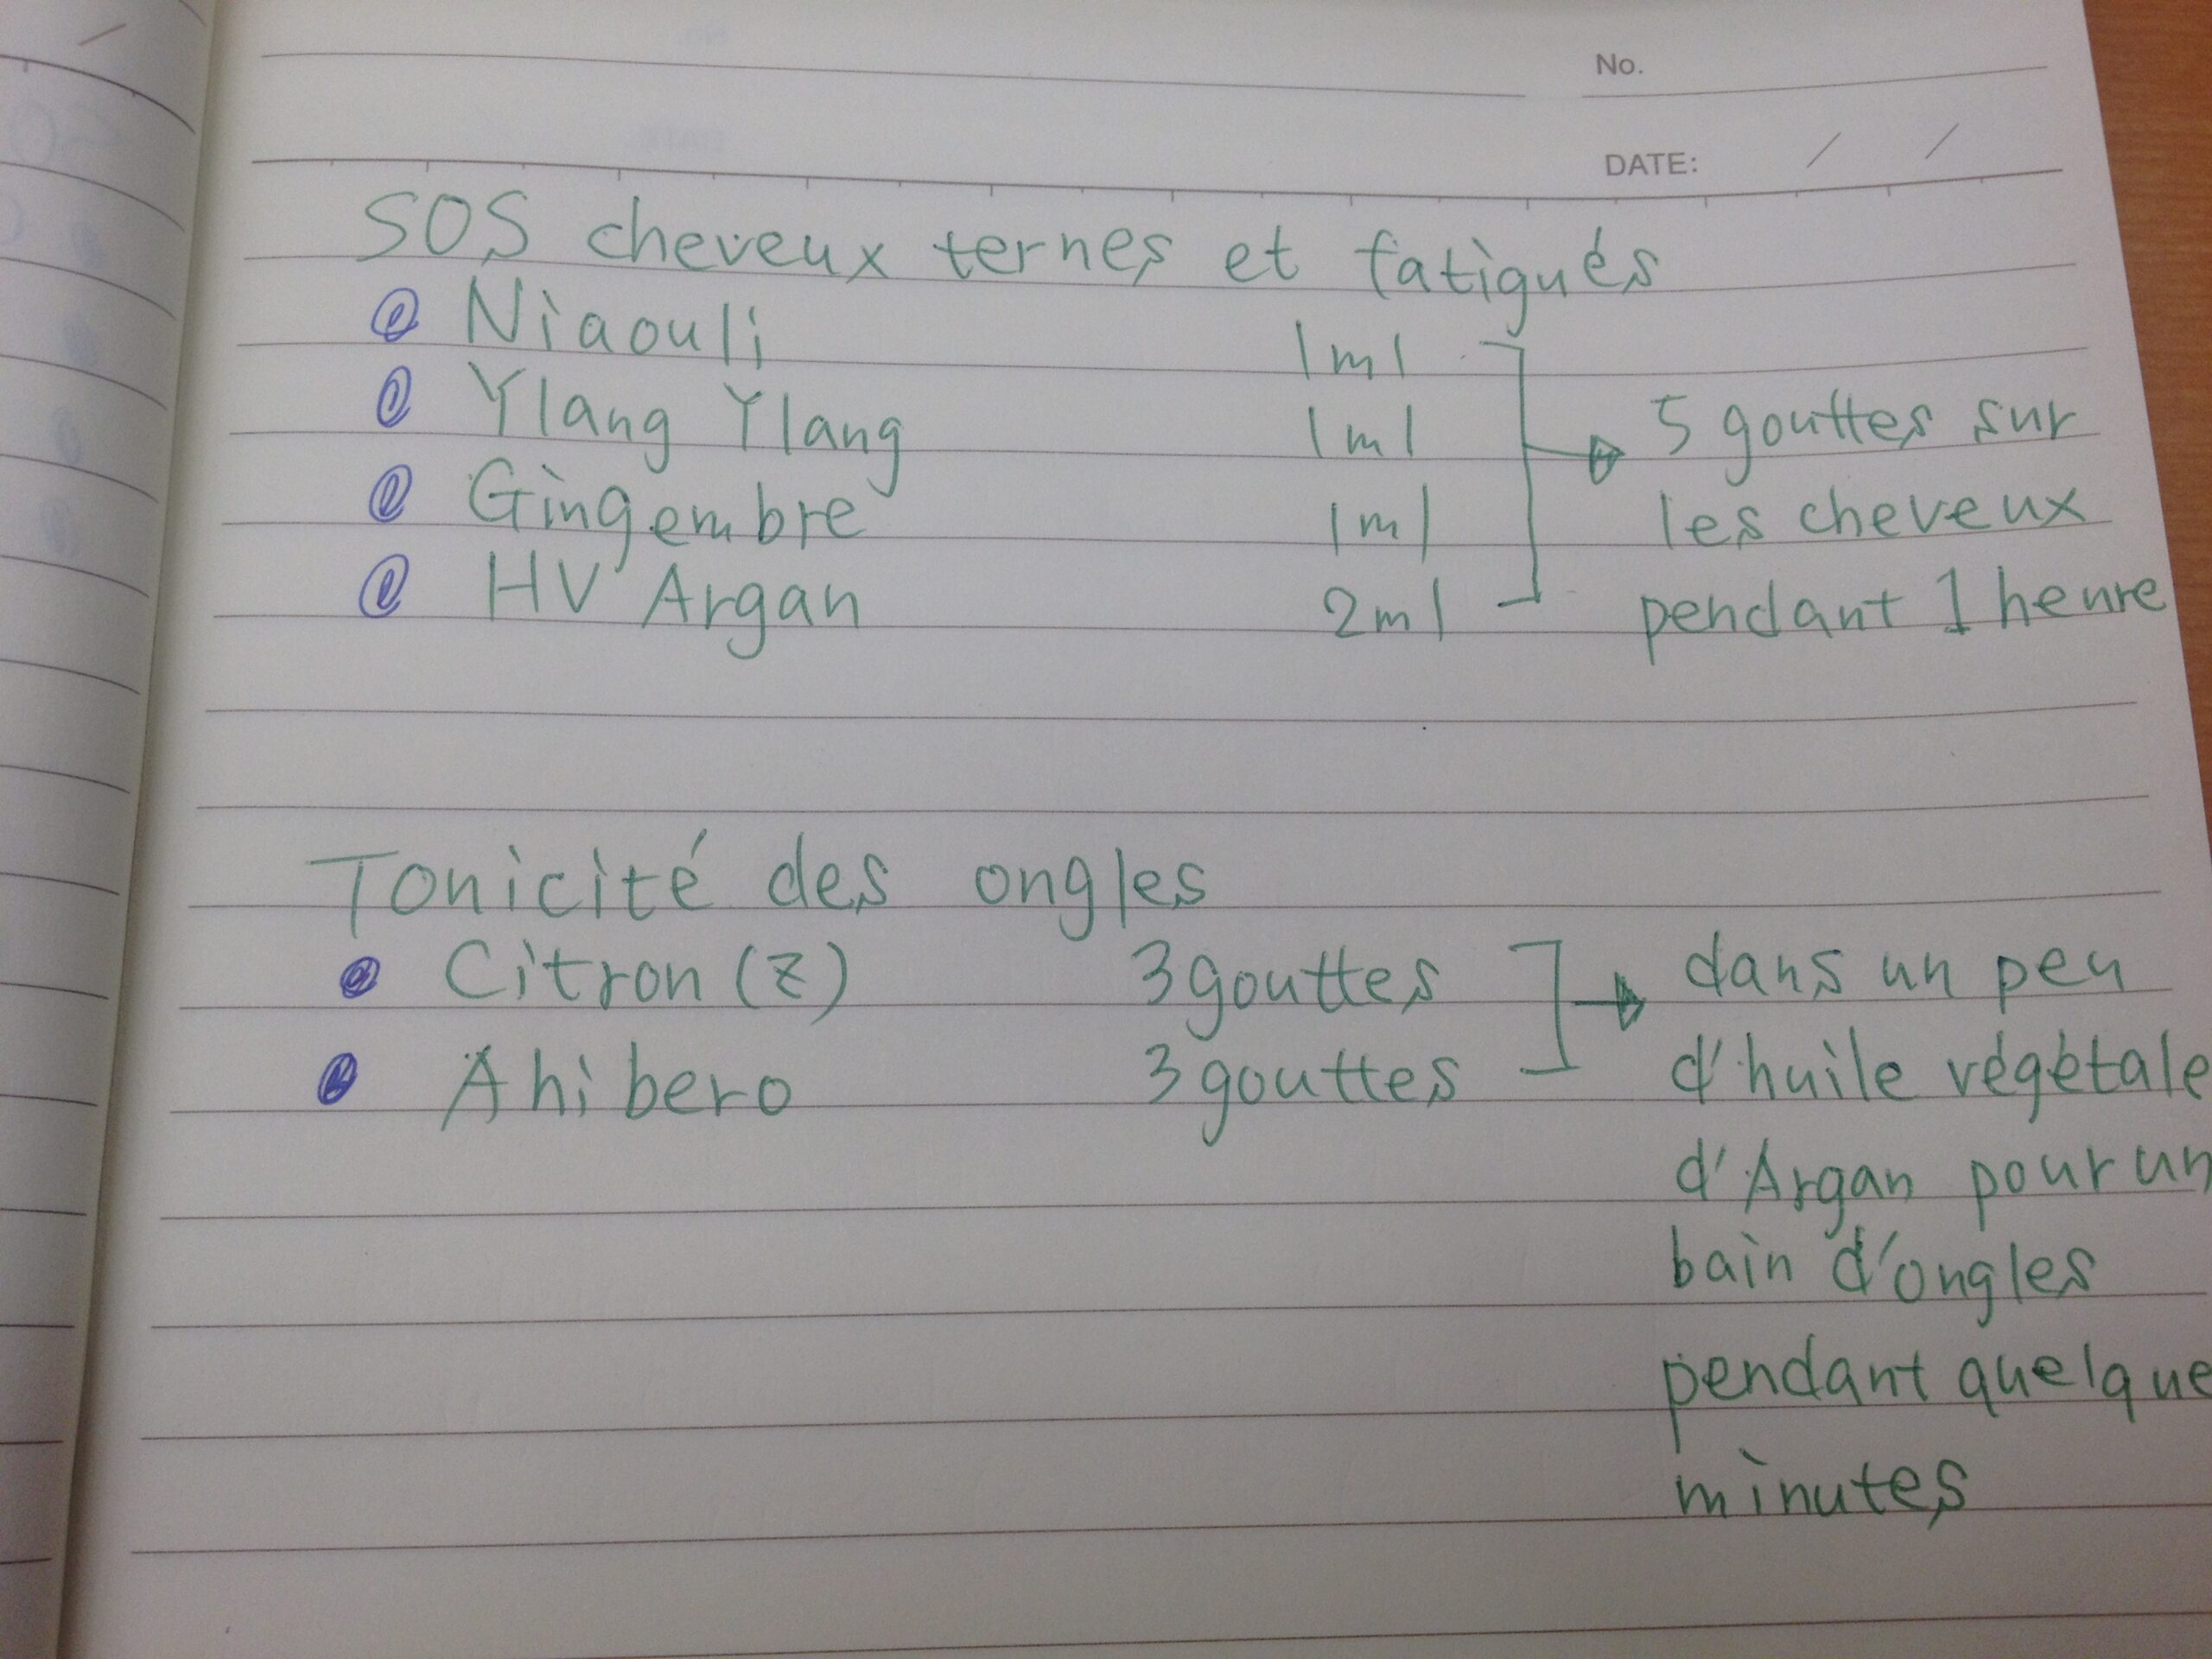 No.
DATE: / /
SOS cheveux ternes et fatigués
Niaouli 1ml
Ylang Ylang 1ml
Gingembre 1ml
HV Argan 2ml
5 gouttes sur
les cheveux
pendant 1 heure
Tonicité des ongles
Citron (z) 3 gouttes
Ahibero 3 gouttes
dans un peu
d'huile végétale
d'Argan pour un
bain d'ongles
pendant quelque
minutes